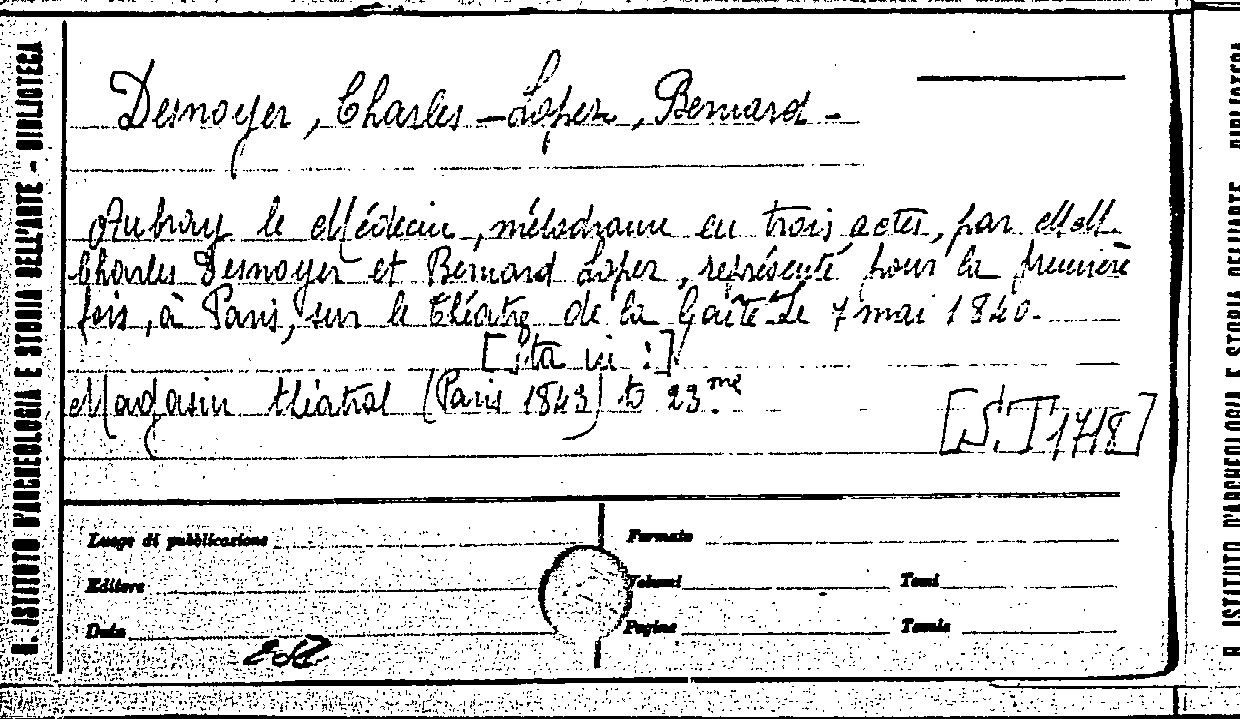 R. ISTITUTO D'ARCHEOLOGIA E STORIA DELL'ARTE - BIBLIOTECA
Desnoyer, Charles - Lopez, Bernard -
Aubray le Médecin, mélodrame en trois actes, par MM.
Charles Desnoyer et Bernard Lopez, représenté pour la première
fois, à Paris, sur le théatre de la Gaîté le 7 mai 1840.
[Sta in :]
Magasin théatral (Paris 1843) to 23.me
[S.T.1718]
Luogo di pubblicazione
Formato
Editore
Volumi
Tomi
Data
Pagine
Tomia
R. ISTITUTO D'ARCHEOLOGIA E STORIA DELL'ARTE - BIBLIOTECA